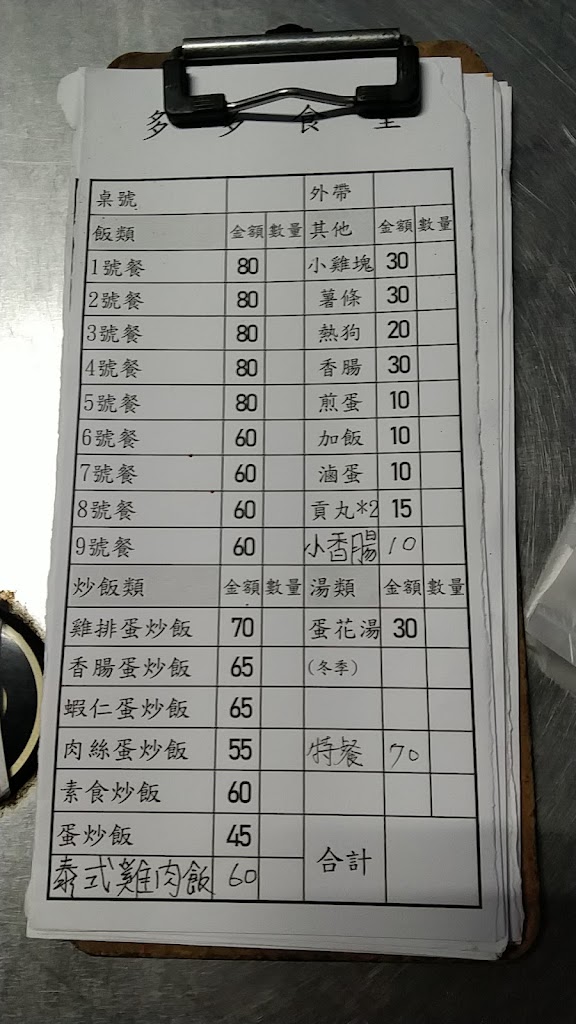 多多食堂
桌號 外帶
飯類 金額 數量 其他 金額 數量
1號餐 80 小雞塊 30
2號餐 80 薯條 30
3號餐 80 熱狗 20
4號餐 80 香腸 30
5號餐 80 煎蛋 10
6號餐 60 加飯 10
7號餐 60 滷蛋 10
8號餐 60 貢丸*2 15
9號餐 60 小香腸 10
炒飯類 金額 數量 湯類 金額 數量
雞排蛋炒飯 70 蛋花湯 30
香腸蛋炒飯 65 (冬季)
蝦仁蛋炒飯 65
肉絲蛋炒飯 55 特餐 70
素食炒飯 60
蛋炒飯 45 合計
泰式雞肉飯 60